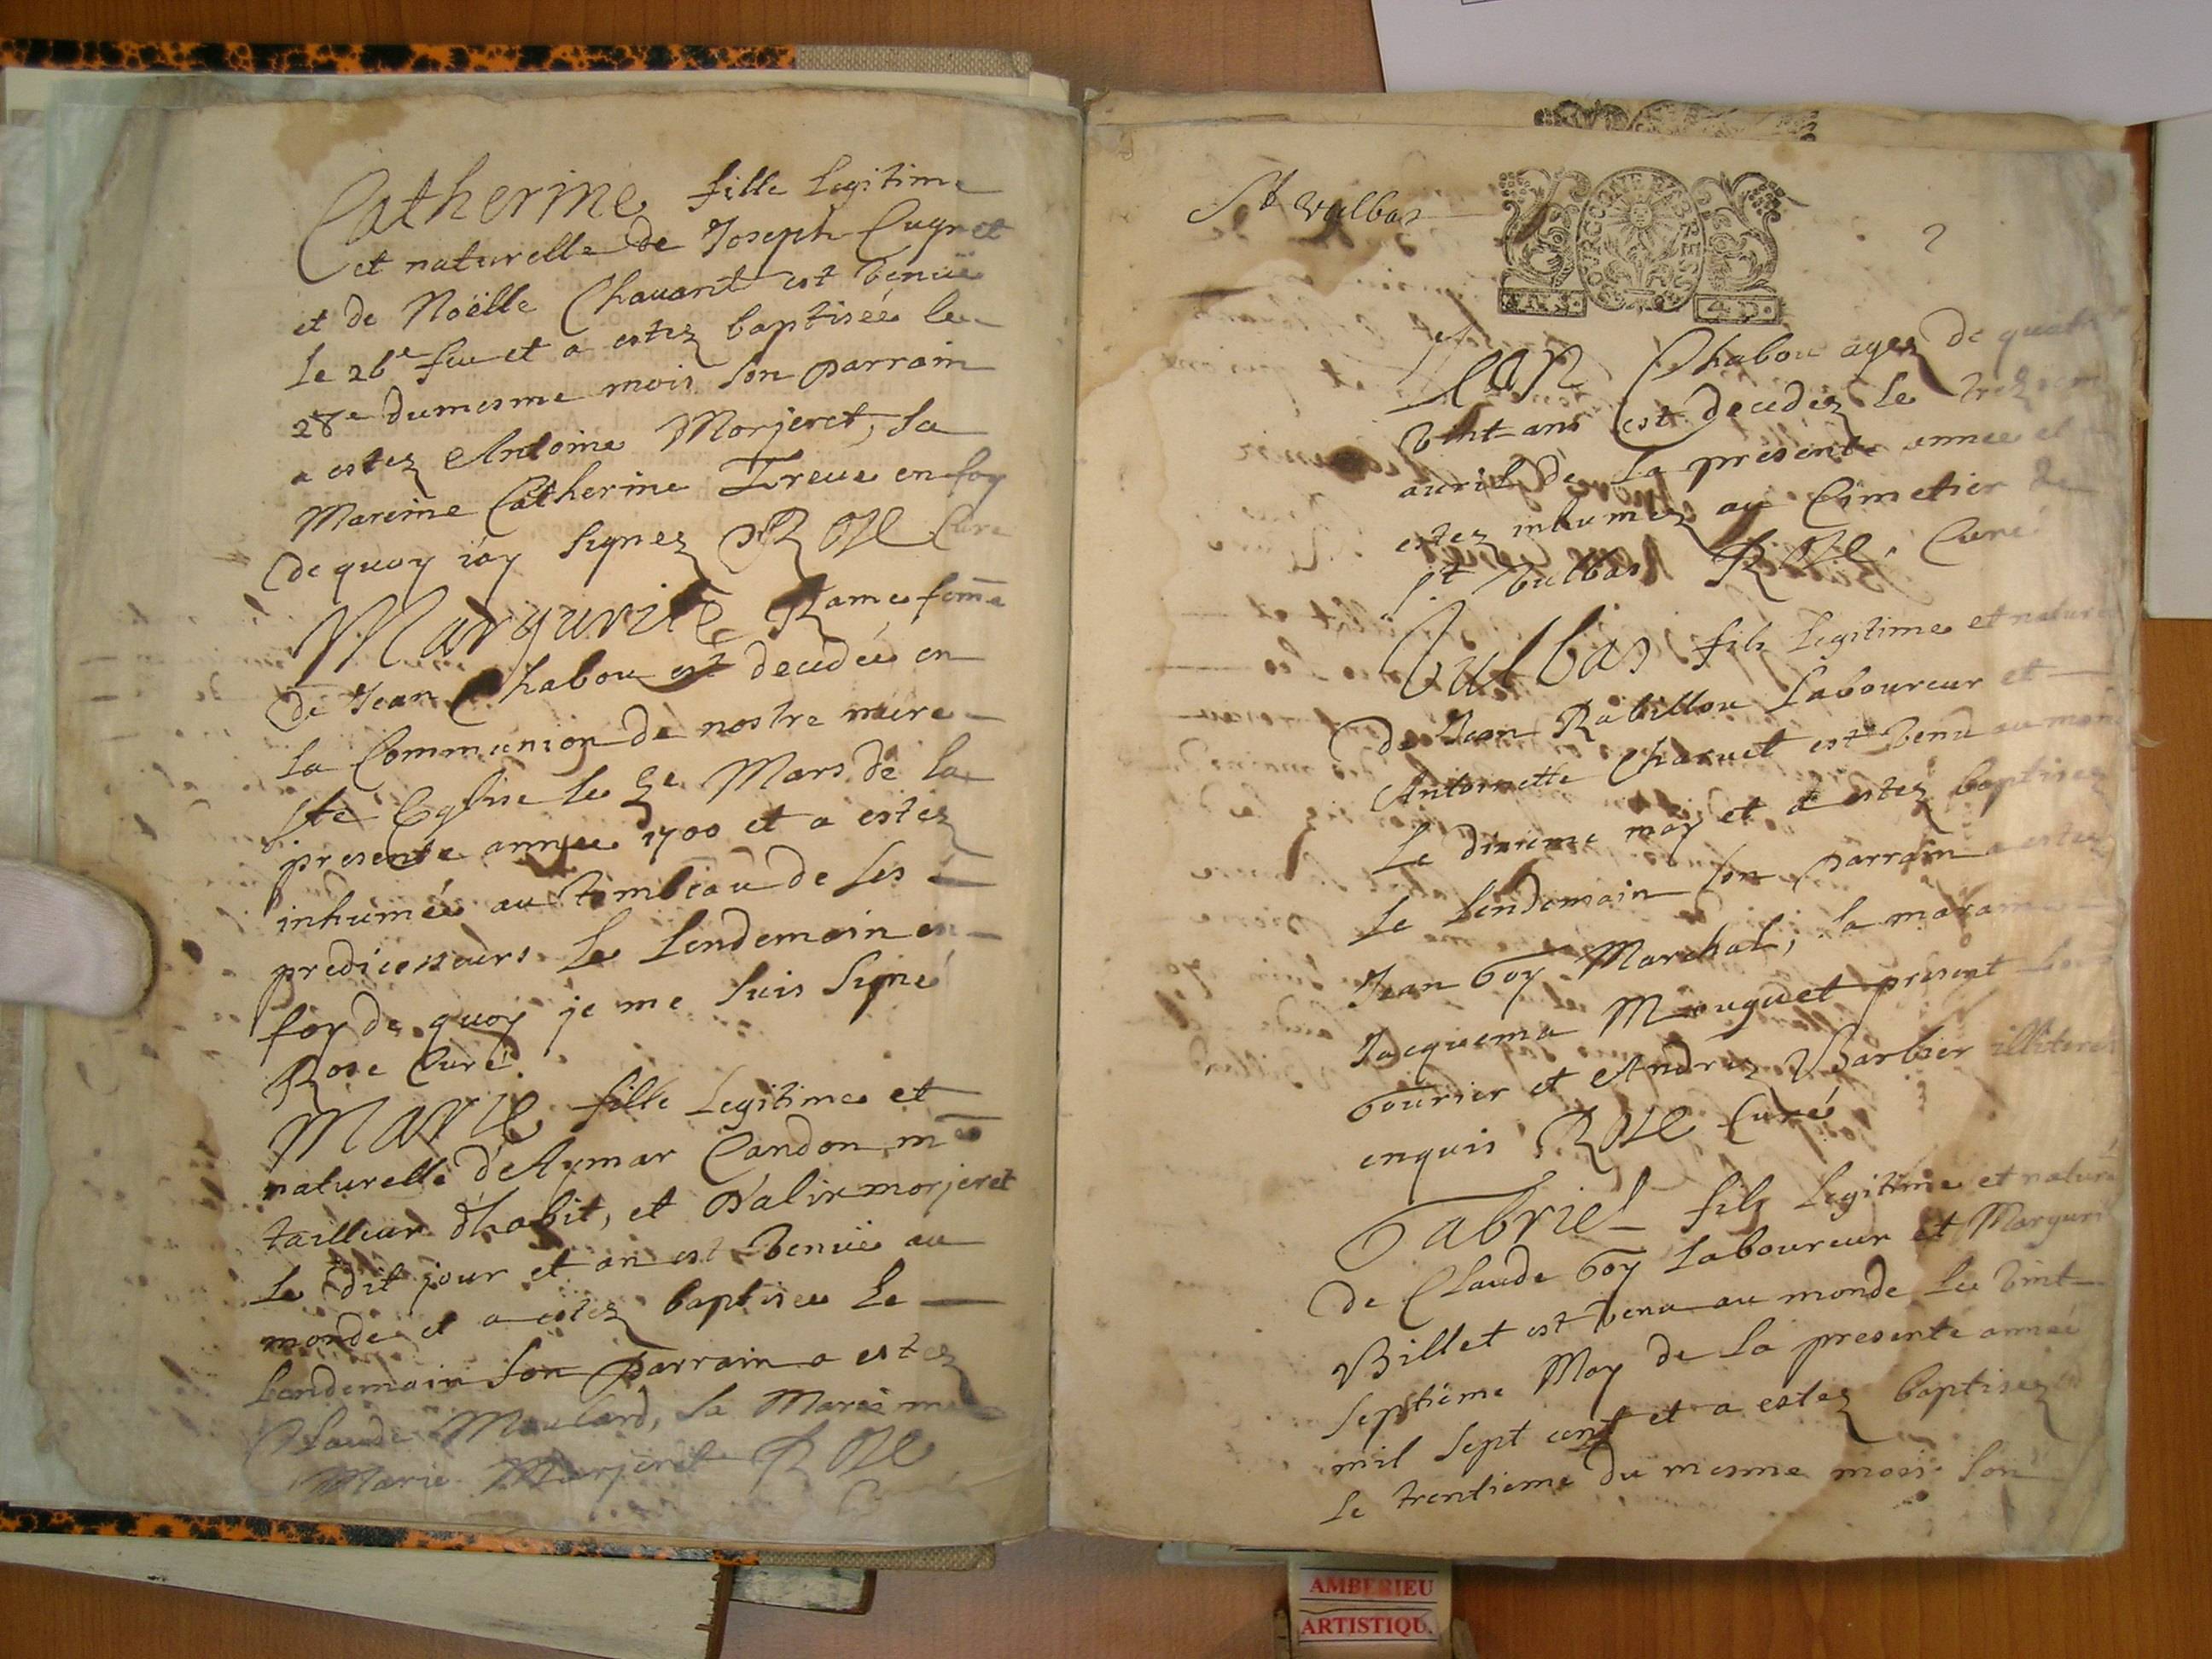 Catherine fille legitime
et naturelle de Joseph Cugnet
et de Noëlle Chauant est venüe
le 26e feu et a estez baptiseé le
28e dumesme mois son parrain
a estez Antoine Morjeret, sa
Mareine Catherine Treue en foy
de quoy iay signez Rose Cure
Margurite Rame fem̄e
de Jean Chabou est decedeé en
la Communion de nostre mere
Ste Eglise le 5e Mars de la
presente anneé 1700 et a estez
inhumeé au tombeau de ses
predicesseurs le lendemain en
foy de quoy je me suis signé
Rose Curé
Marie fille legitime et
naturelle d'Aymar Candon me
tailleur d'habit, et D'alix morjeret
le dit jour et an est venüe au
monde et a estez baptiseé le
lendemain son parrain a estez
Claude Moulard, sa Mareine
Marie Morjeret Rose
Curé
St vulbas
2
Jean Chabou agez de quatre
vint ans est decedez le treziem
auril de la presente anneé et a
estez inhumez au Cimetier de
St Vulbas Rose Curé
Vulbas fils legitime et nature
de Jean Rabillou laboureur et
Antoinette Charuet est venu au mon
le dixieme may et a estez baptisez
le lendemain son parrain a estez
Jean Goy Marchal, sa maraine
Jacquema Mouguet present
Gourier et Andrez Barbier illiterez
enquis Rose Curé
Gabriel fils legitime et naturel
de Claude Goy laboureur et Marguri
Billet est venu au monde le vint
septieme May de la presente anneé
mil sept cent et a estez baptisez
le trentieme du mesme mois son
AMBERIEU
ARTISTIQU